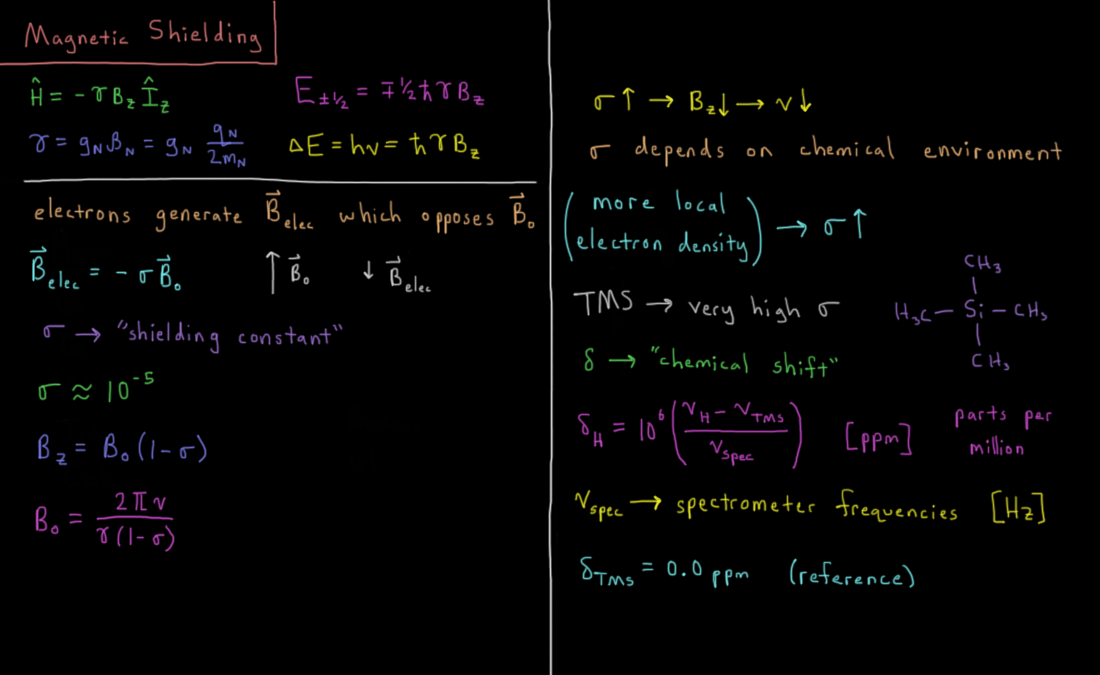 Magnetic Shielding
Ĥ = -γB_z Î_z
E_±1/2 = ∓½ħγB_z
γ = g_N β_N = g_N q_N/2m_N
ΔE = hν = ħγB_z
electrons generate B⃗_elec which opposes B⃗_0
B⃗_elec = -σB⃗_0 ↑ B⃗_0 ↓ B⃗_elec
σ → "shielding constant"
σ ≈ 10^-5
B_z = B_0(1-σ)
B_0 = 2πν/γ(1-σ)
σ↑ → B_z↓ → ν↓
σ depends on chemical environment
(more local
electron density) → σ↑
TMS → very high σ
CH₃
H₃C — Si — CH₃
CH₃
δ → "chemical shift"
δ_H = 10^6 (ν_H - ν_TMS / ν_spec) [ppm] parts per
million
ν_spec → spectrometer frequencies [Hz]
δ_TMS = 0.0 ppm (reference)